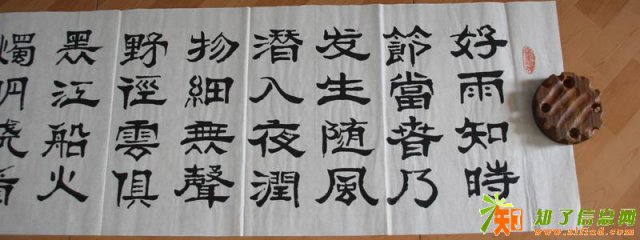 好雨知時
節當春乃
发生随風
潜入夜潤
物細無聲
野徑雲俱
黑江船火
知了信息网